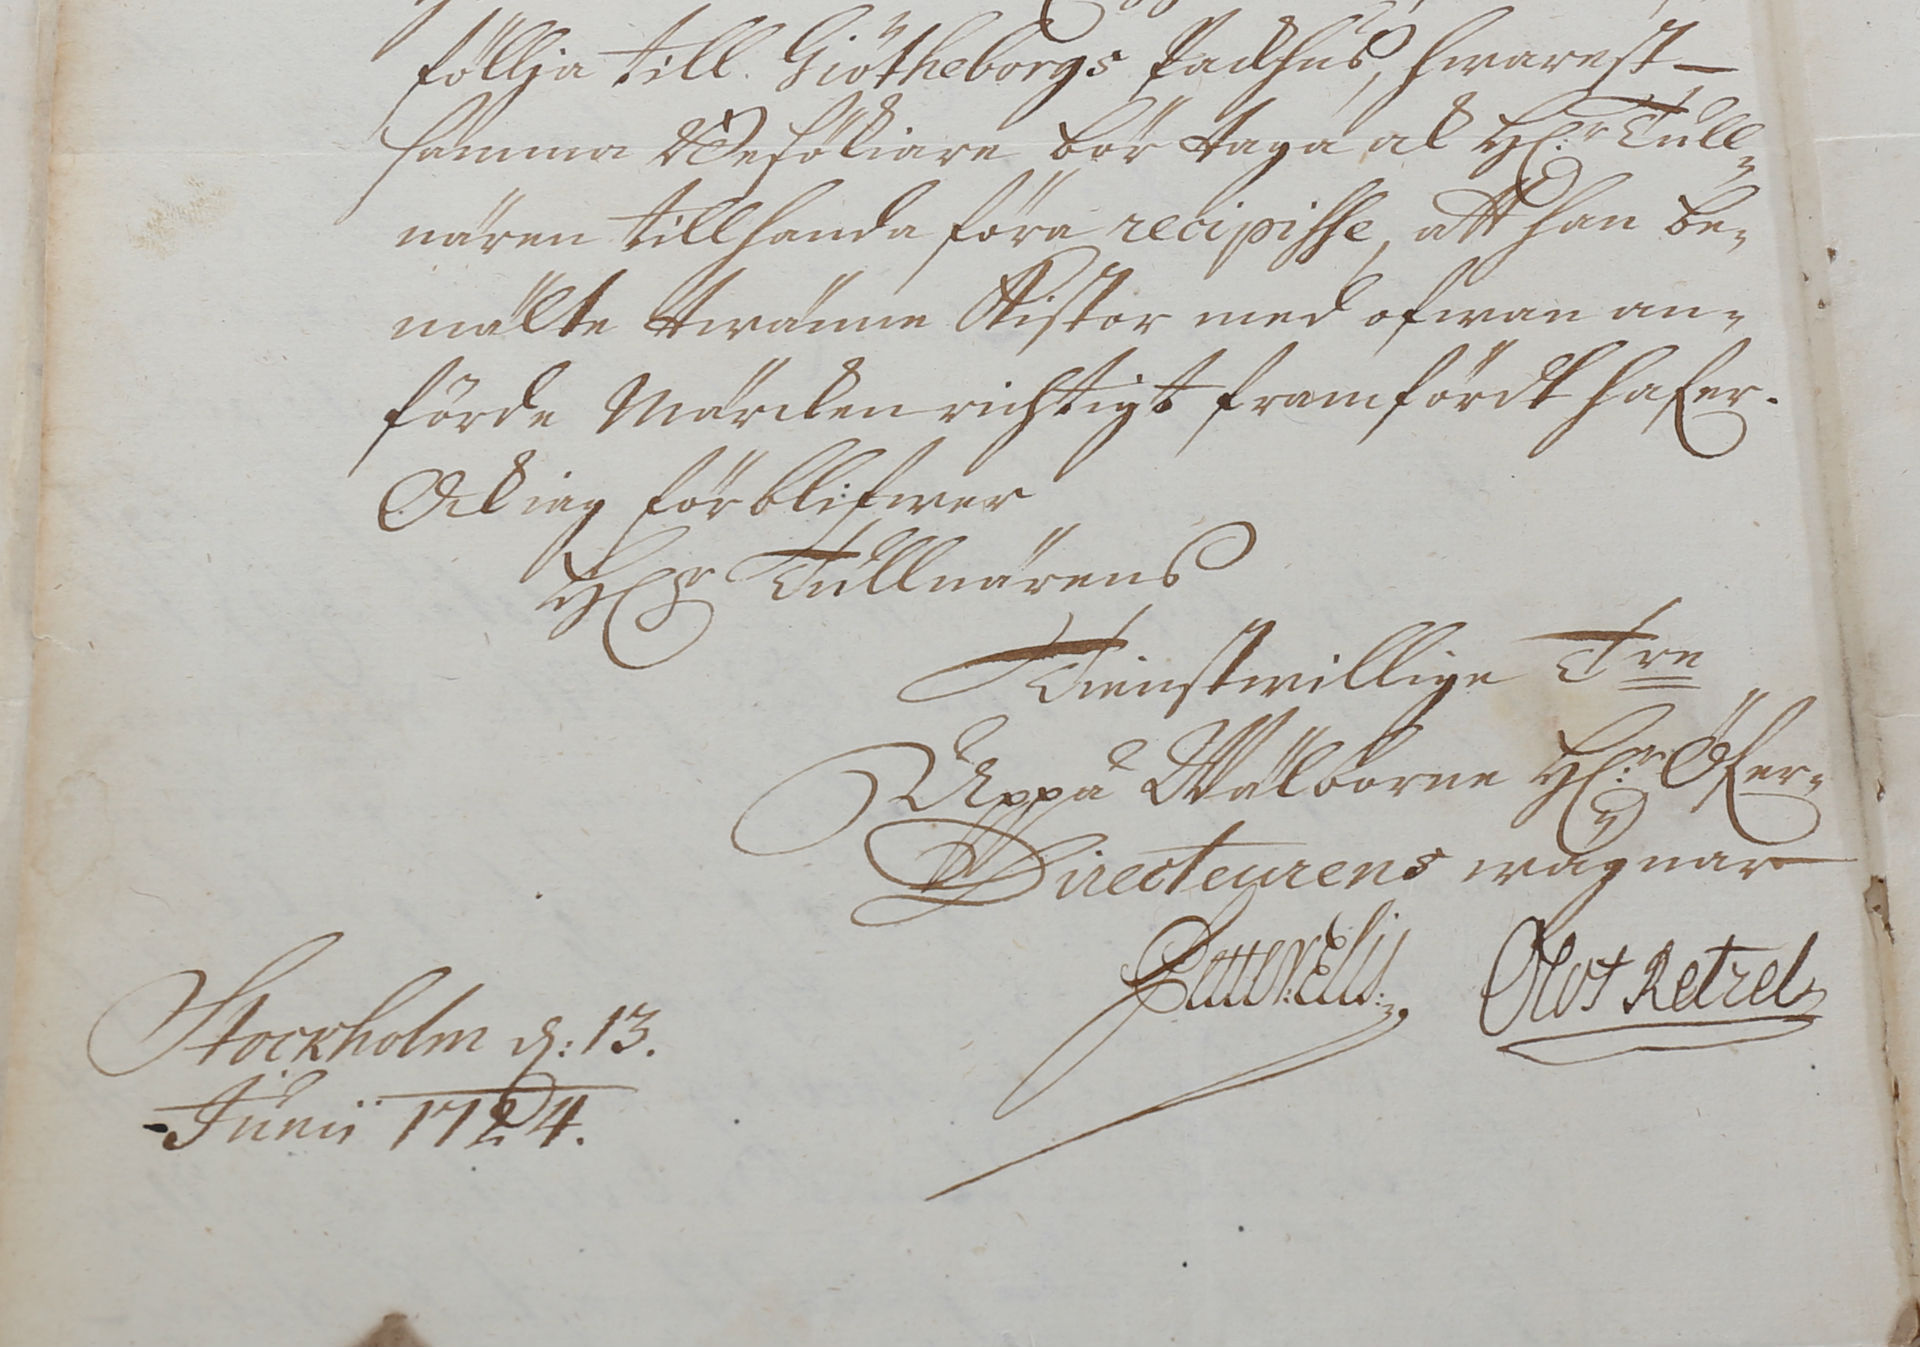 föllja till Giötheborgs Packhus, hwarest
samma Besökiare bör taga af H:r Tull-
nären tillhanda föra recipisse, att han be-
mälte twänne Kistor med ofwan an-
förde Märcken richtigt framfördt hafer.
Och iag förblifwer
H:r Tullnärens
Tienstwillige Tre
Uppå Wälborne H:r Öfer-
Directeurens wägnar
Petter Elis: Olof Retzel
Stockholm d: 13.
Junii 1724.